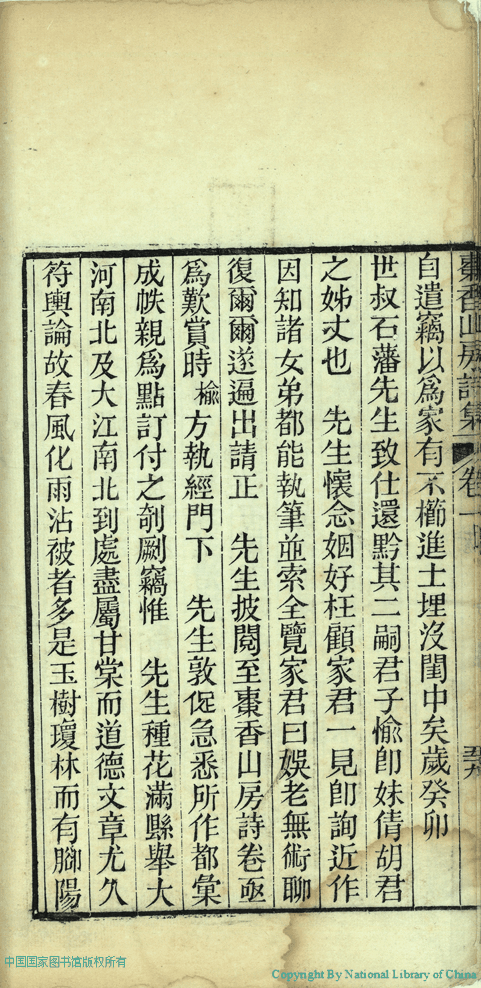 棗香山房詩集 卷一
自遣竊以爲家有不櫛進士埋没閨中矣歲癸卯
世叔石藩先生致仕還黔其二嗣君子愉卽妹倩胡君
之姊丈也 先生懷念姻好枉顧家君一見卽詢近作
因知諸女弟都能執筆並索全覽家君曰娛老無術聊
復爾爾遂遍出請正 先生披閱至棗香山房詩卷亟
爲歎賞時榆方執經門下 先生敦促急悉所作都彙
成帙親爲點訂付之剞劂竊惟 先生種花滿縣舉大
河南北及大江南北到處盡屬甘棠而道德文章尤久
符輿論故春風化雨沾被者多是玉樹瓊林而有腳陽
中国国家图书馆版权所有
Copyright By National Library of China